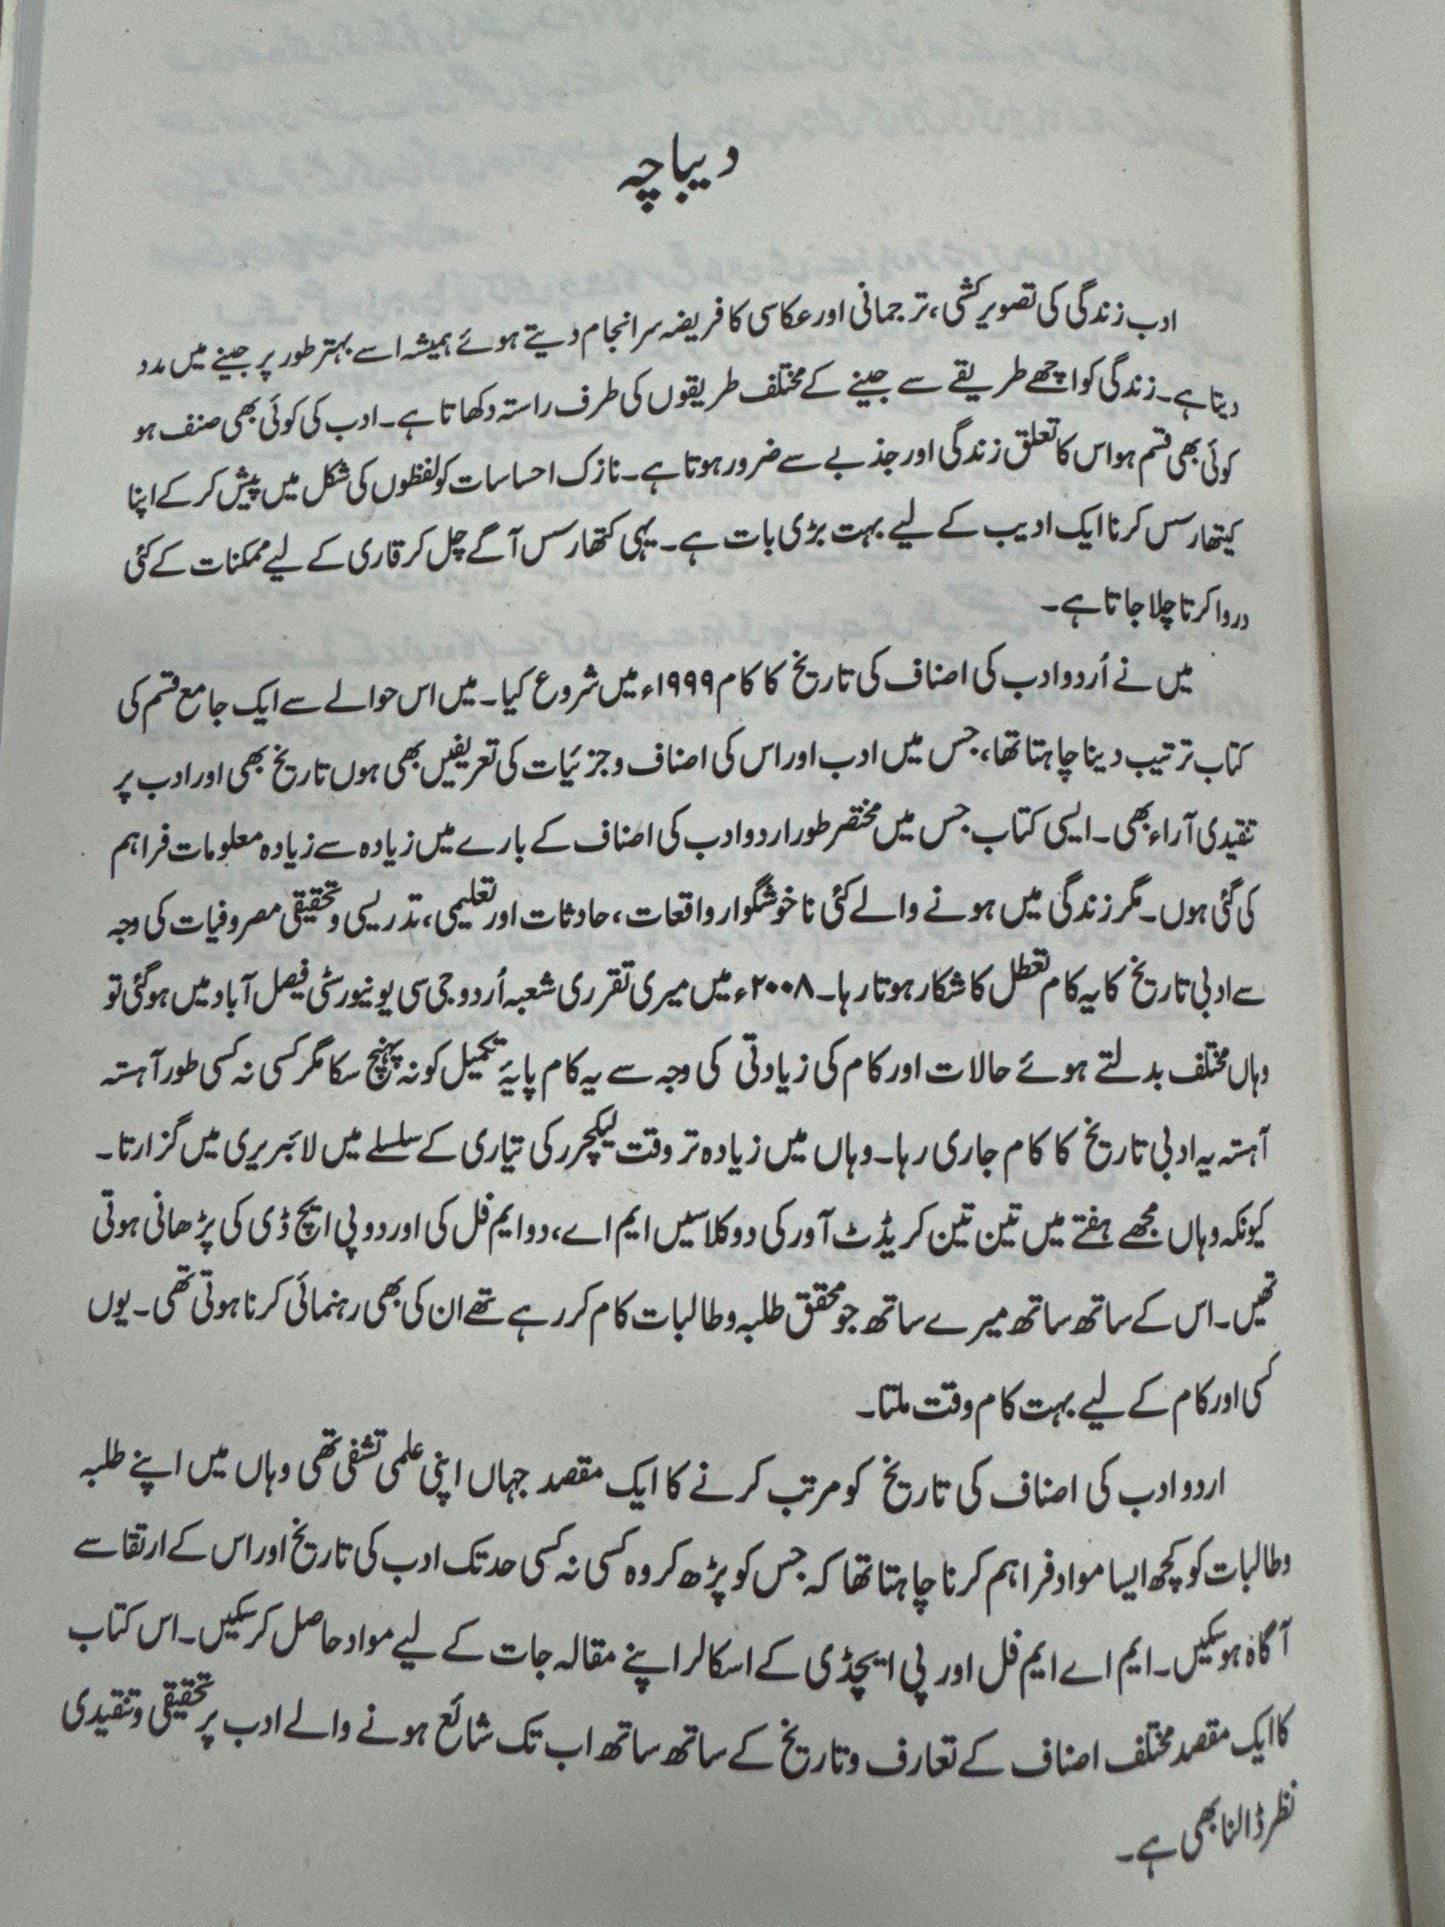 دیباچہ
ادب زندگی کی تصویر کشی، ترجمانی اور عکاسی کا فریضہ سرانجام دیتے ہوئے ہمیشہ اسے بہتر طور پر جینے میں مدد
دیتا ہے۔ زندگی کو اچھے طریقے سے جینے کے مختلف طریقوں کی طرف راستہ دکھاتا ہے۔ ادب کی کوئی بھی صنف ہو
کوئی بھی قسم ہو اس کا تعلق زندگی اور جذبے سے ضرور ہوتا ہے۔ نازک احساسات کو لفظوں کی شکل میں پیش کر کے اپنا
کیتھارسس کرنا ایک ادیب کے لیے بہت بڑی بات ہے۔ یہی کتھارسس آگے چل کر قاری کے لیے ممکنات کے کئی
در وا کرتا چلا جاتا ہے۔
میں نے اُردو ادب کی اصناف کی تاریخ کا کام ۱۹۹۹ء میں شروع کیا۔ میں اس حوالے سے ایک جامع قسم کی
کتاب ترتیب دینا چاہتا تھا، جس میں ادب اور اس کی اصناف و جزئیات کی تعریفیں بھی ہوں تاریخ بھی اور ادب پر
تنقیدی آراء بھی۔ ایسی کتاب جس میں مختصر طور اردو ادب کی اصناف کے بارے میں زیادہ سے زیادہ معلومات فراہم
کی گئی ہوں۔ مگر زندگی میں ہونے والے کئی ناخوشگوار واقعات، حادثات اور تعلیمی، تدریسی و تحقیقی مصروفیات کی وجہ
سے ادبی تاریخ کا یہ کام تعطل کا شکار ہوتا رہا۔ ۲۰۰۸ء میں میری تقرری شعبہ اُردو جی سی یونیورسٹی فیصل آباد میں ہوگئی تو
وہاں مختلف بدلتے ہوئے حالات اور کام کی زیادتی کی وجہ سے یہ کام پایۂ تکمیل کو نہ پہنچ سکا مگر کسی نہ کسی طور آہستہ
آہستہ یہ ادبی تاریخ کا کام جاری رہا۔ وہاں میں زیادہ تر وقت لیکچرر کی تیاری کے سلسلے میں لائبریری میں گزارتا۔
کیونکہ وہاں مجھے ہفتے میں تین تین کریڈٹ آور کی دو کلاسیں ایم اے، دو ایم فل کی اور دو پی ایچ ڈی کی پڑھانی ہوتی
تھیں۔ اس کے ساتھ ساتھ میرے ساتھ جو محقق طلبہ و طالبات کام کر رہے تھے ان کی بھی رہنمائی کرنا ہوتی تھی۔ یوں
کسی اور کام کے لیے بہت کام وقت ملتا۔
اردو ادب کی اصناف کی تاریخ کو مرتب کرنے کا ایک مقصد جہاں اپنی علمی تشفی تھی وہاں میں اپنے طلبہ
و طالبات کو کچھ ایسا مواد فراہم کرنا چاہتا تھا کہ جس کو پڑھ کر وہ کسی نہ کسی حد تک ادب کی تاریخ اور اس کے ارتقا سے
آگاہ ہوسکیں۔ ایم اے ایم فل اور پی ایچڈی کے اسکالر اپنے مقالہ جات کے لیے مواد حاصل کر سکیں۔ اس کتاب
کا ایک مقصد مختلف اصناف کے تعارف و تاریخ کے ساتھ ساتھ اب تک شائع ہونے والے ادب پر تحقیقی و تنقیدی
نظر ڈالنا بھی ہے۔